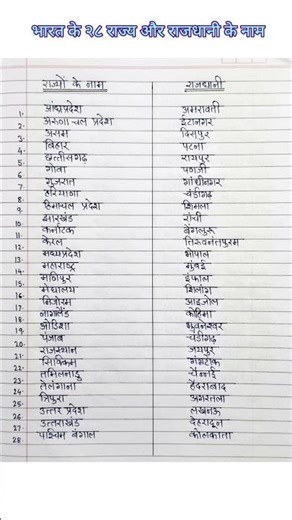 भारत के २८ राज्य और राजधानी के नाम
राज्यों के नाम राजधानी
1. आंध्रप्रदेश अमरावती
2. अरुणाचल प्रदेश ईटानगर
3. असम दिसपुर
4. बिहार पटना
5. छत्तीसगढ़ रायपुर
6. गोवा पणजी
7. गुजरात गांधीनगर
8. हरियाणा चंडीगढ़
9. हिमाचल प्रदेश शिमला
10. झारखंड रांची
11. कर्नाटक बेंगलुरू
12. केरल तिरुवनंतपुरम
13. मध्यप्रदेश भोपाल
14. महाराष्ट्र मुंबई
15. मणिपुर इंफाल
16. मेघालय शिलांग
17. मिजोरम आइजोल
18. नागालैंड कोहिमा
19. ओडिशा भुवनेश्वर
20. पंजाब चंडीगढ़
21. राजस्थान जयपुर
22. सिक्किम गंगटोक
23. तमिलनाडु चेन्नई
24. तेलंगाना हैदराबाद
25. त्रिपुरा अगरतला
26. उत्तर प्रदेश लखनऊ
27. उत्तराखंड देहरादून
28. पश्चिम बंगाल कोलकाता